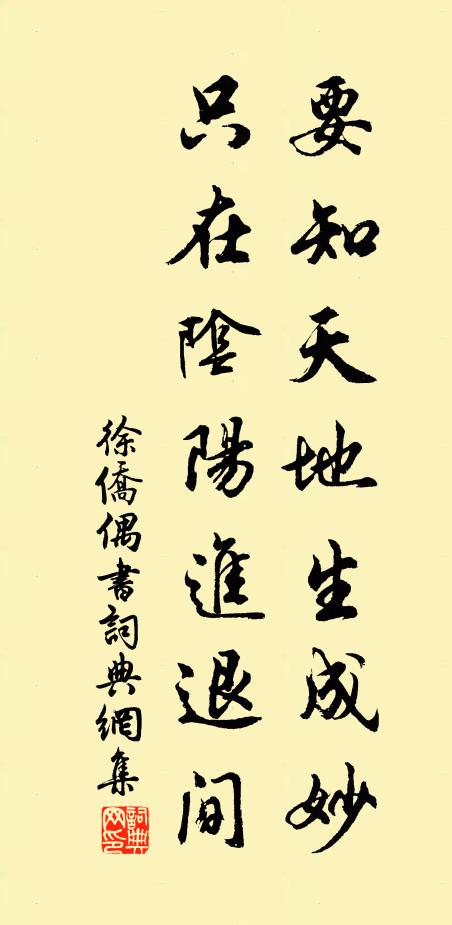 要知天地生成妙
只在陰陽進退間
徐僑偶書詞典網集
詞典網印